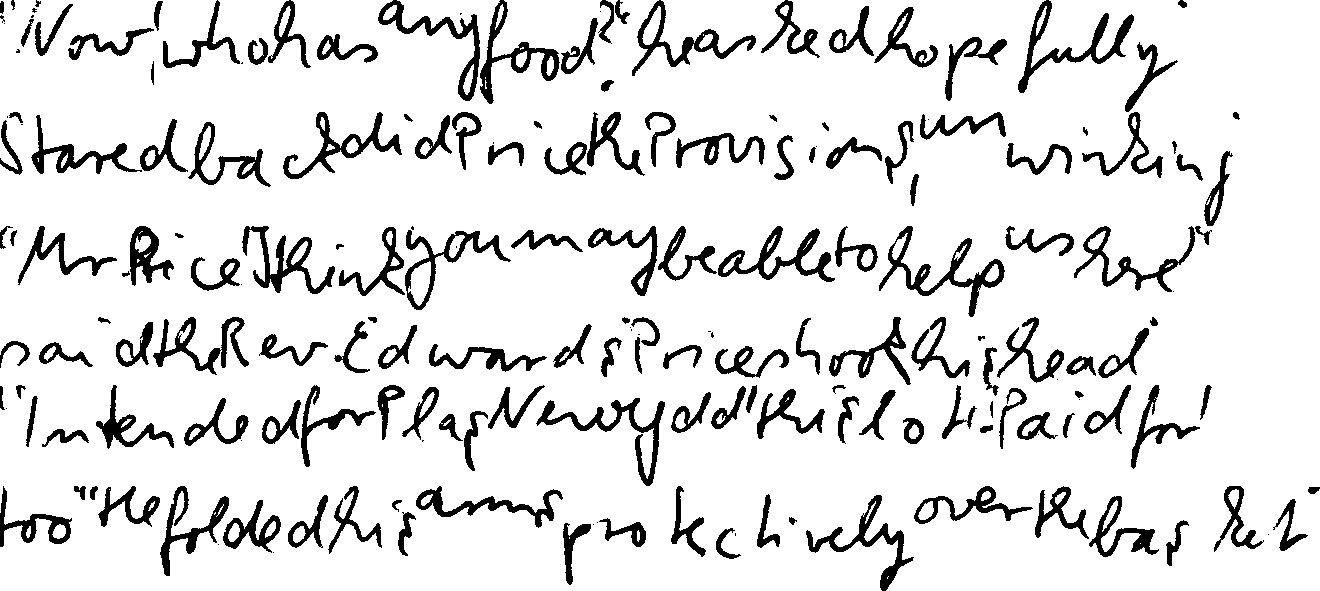 "Now, who has any food?" he asked hopefully.
Stared back did Price the Provisions, unwinking.
"Mr. Price, I think you may be able to help us here,"
said the Rev. Edwards. Price shook his head.
"Intended for Plas Newydd, this lot. Paid for,
too." He folded his arms protectively over the basket.